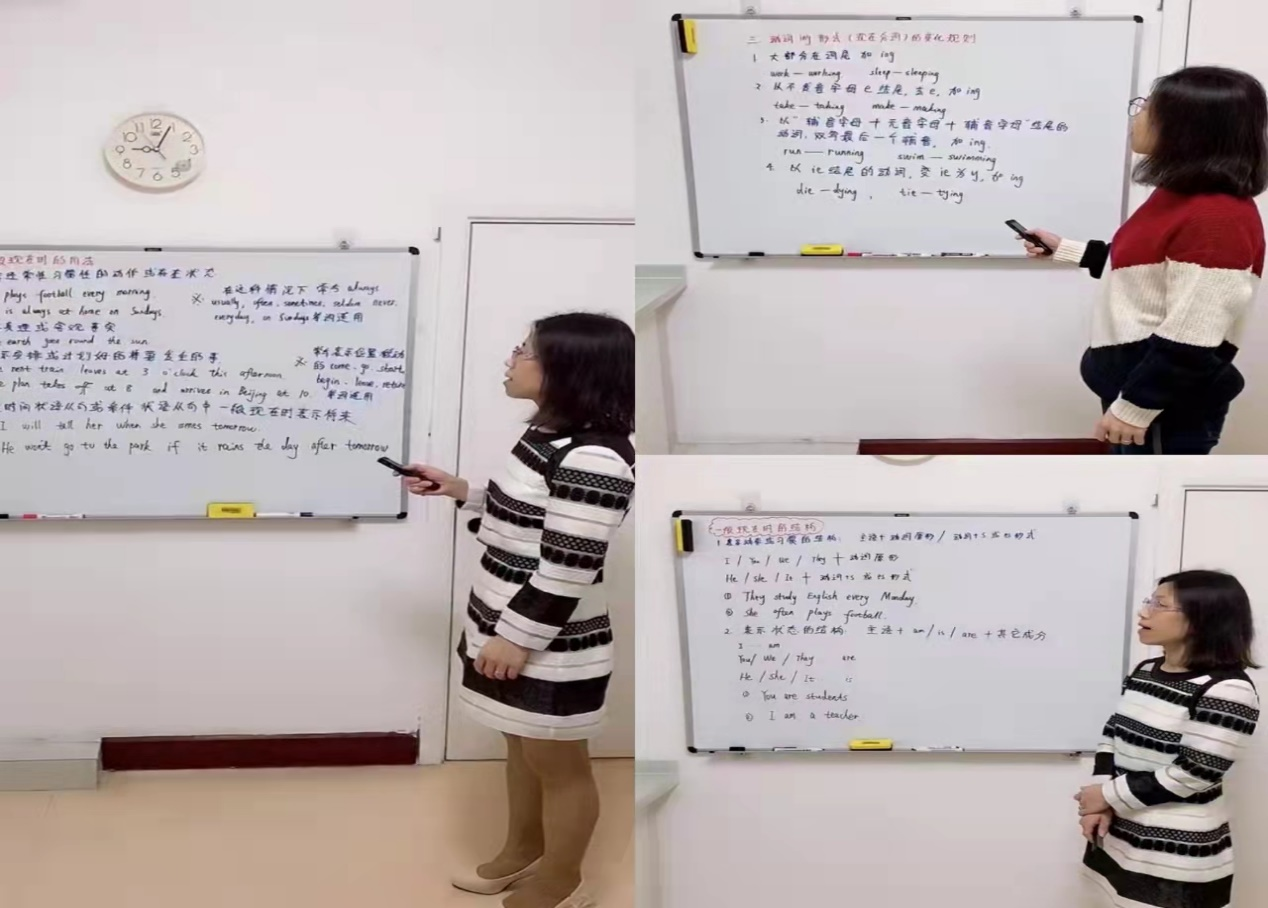 12
1
2
3
4
5
6
7
8
9
10
11
般现在时的用法
经常性习惯性的动作或存在状态
plays football every morning.
is always at home on Sundays.
※ 在这种情况下常与 always
usually, often, sometimes, seldom never,
everyday, on Sundays 等词连用
真理或客观事实
earth goes round the sun.
安排或计划好的将要发生的事.
next train leaves at 3 o'clock this afternoon.
plan takes off at 8 and arrives in Beijing at 10.
※ 常与表示位置移动
的 come, go, start
begin, leave, return
等词连用
时间状语从句或条件状语从句中 一般现在时表示将来
I will tell her when she comes tomorrow.
He won't go to the park if it rains the day after tomorrow
三 动词 ing 形式 (现在分词) 的变化规则
1 大部分在词尾加 ing
work — working sleep — sleeping
2 以不发音字母 e 结尾, 去 e, 加 ing
take — taking make — making
3. 以"辅音字母 + 元音字母 + 辅音字母"结尾的
动词, 双写最后一个辅音, 加 ing.
run — running swim — swimming
4. 以 ie 结尾的动词, 变 ie 为 y, 加 ing
die — dying , tie — tying
一般现在时的结构
1 表示动作或习惯的结构: 主语 + 动词原形 / 动词 + s 或 es 形式
I / You / We / They + 动词原形
He / She / It + 动词 + s 或 es 形式
① They study English every Monday.
② She often plays football.
2 表示状态的结构: 主语 + am / is / are + 其它成分
I am
You / We / They are
He / She / It is
① You are students
② I am a teacher